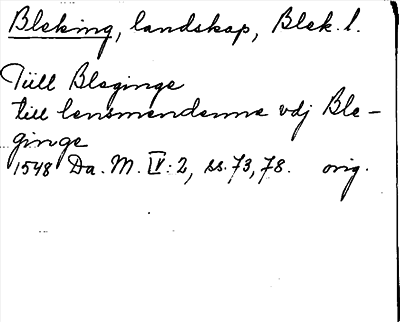 Bleking, landskap, Blek. l.
Tiill Bleginge
till lensmendenne vdj Ble-
ginge
1548 Da. M. IV: 2, ss. 73, 78. orig.